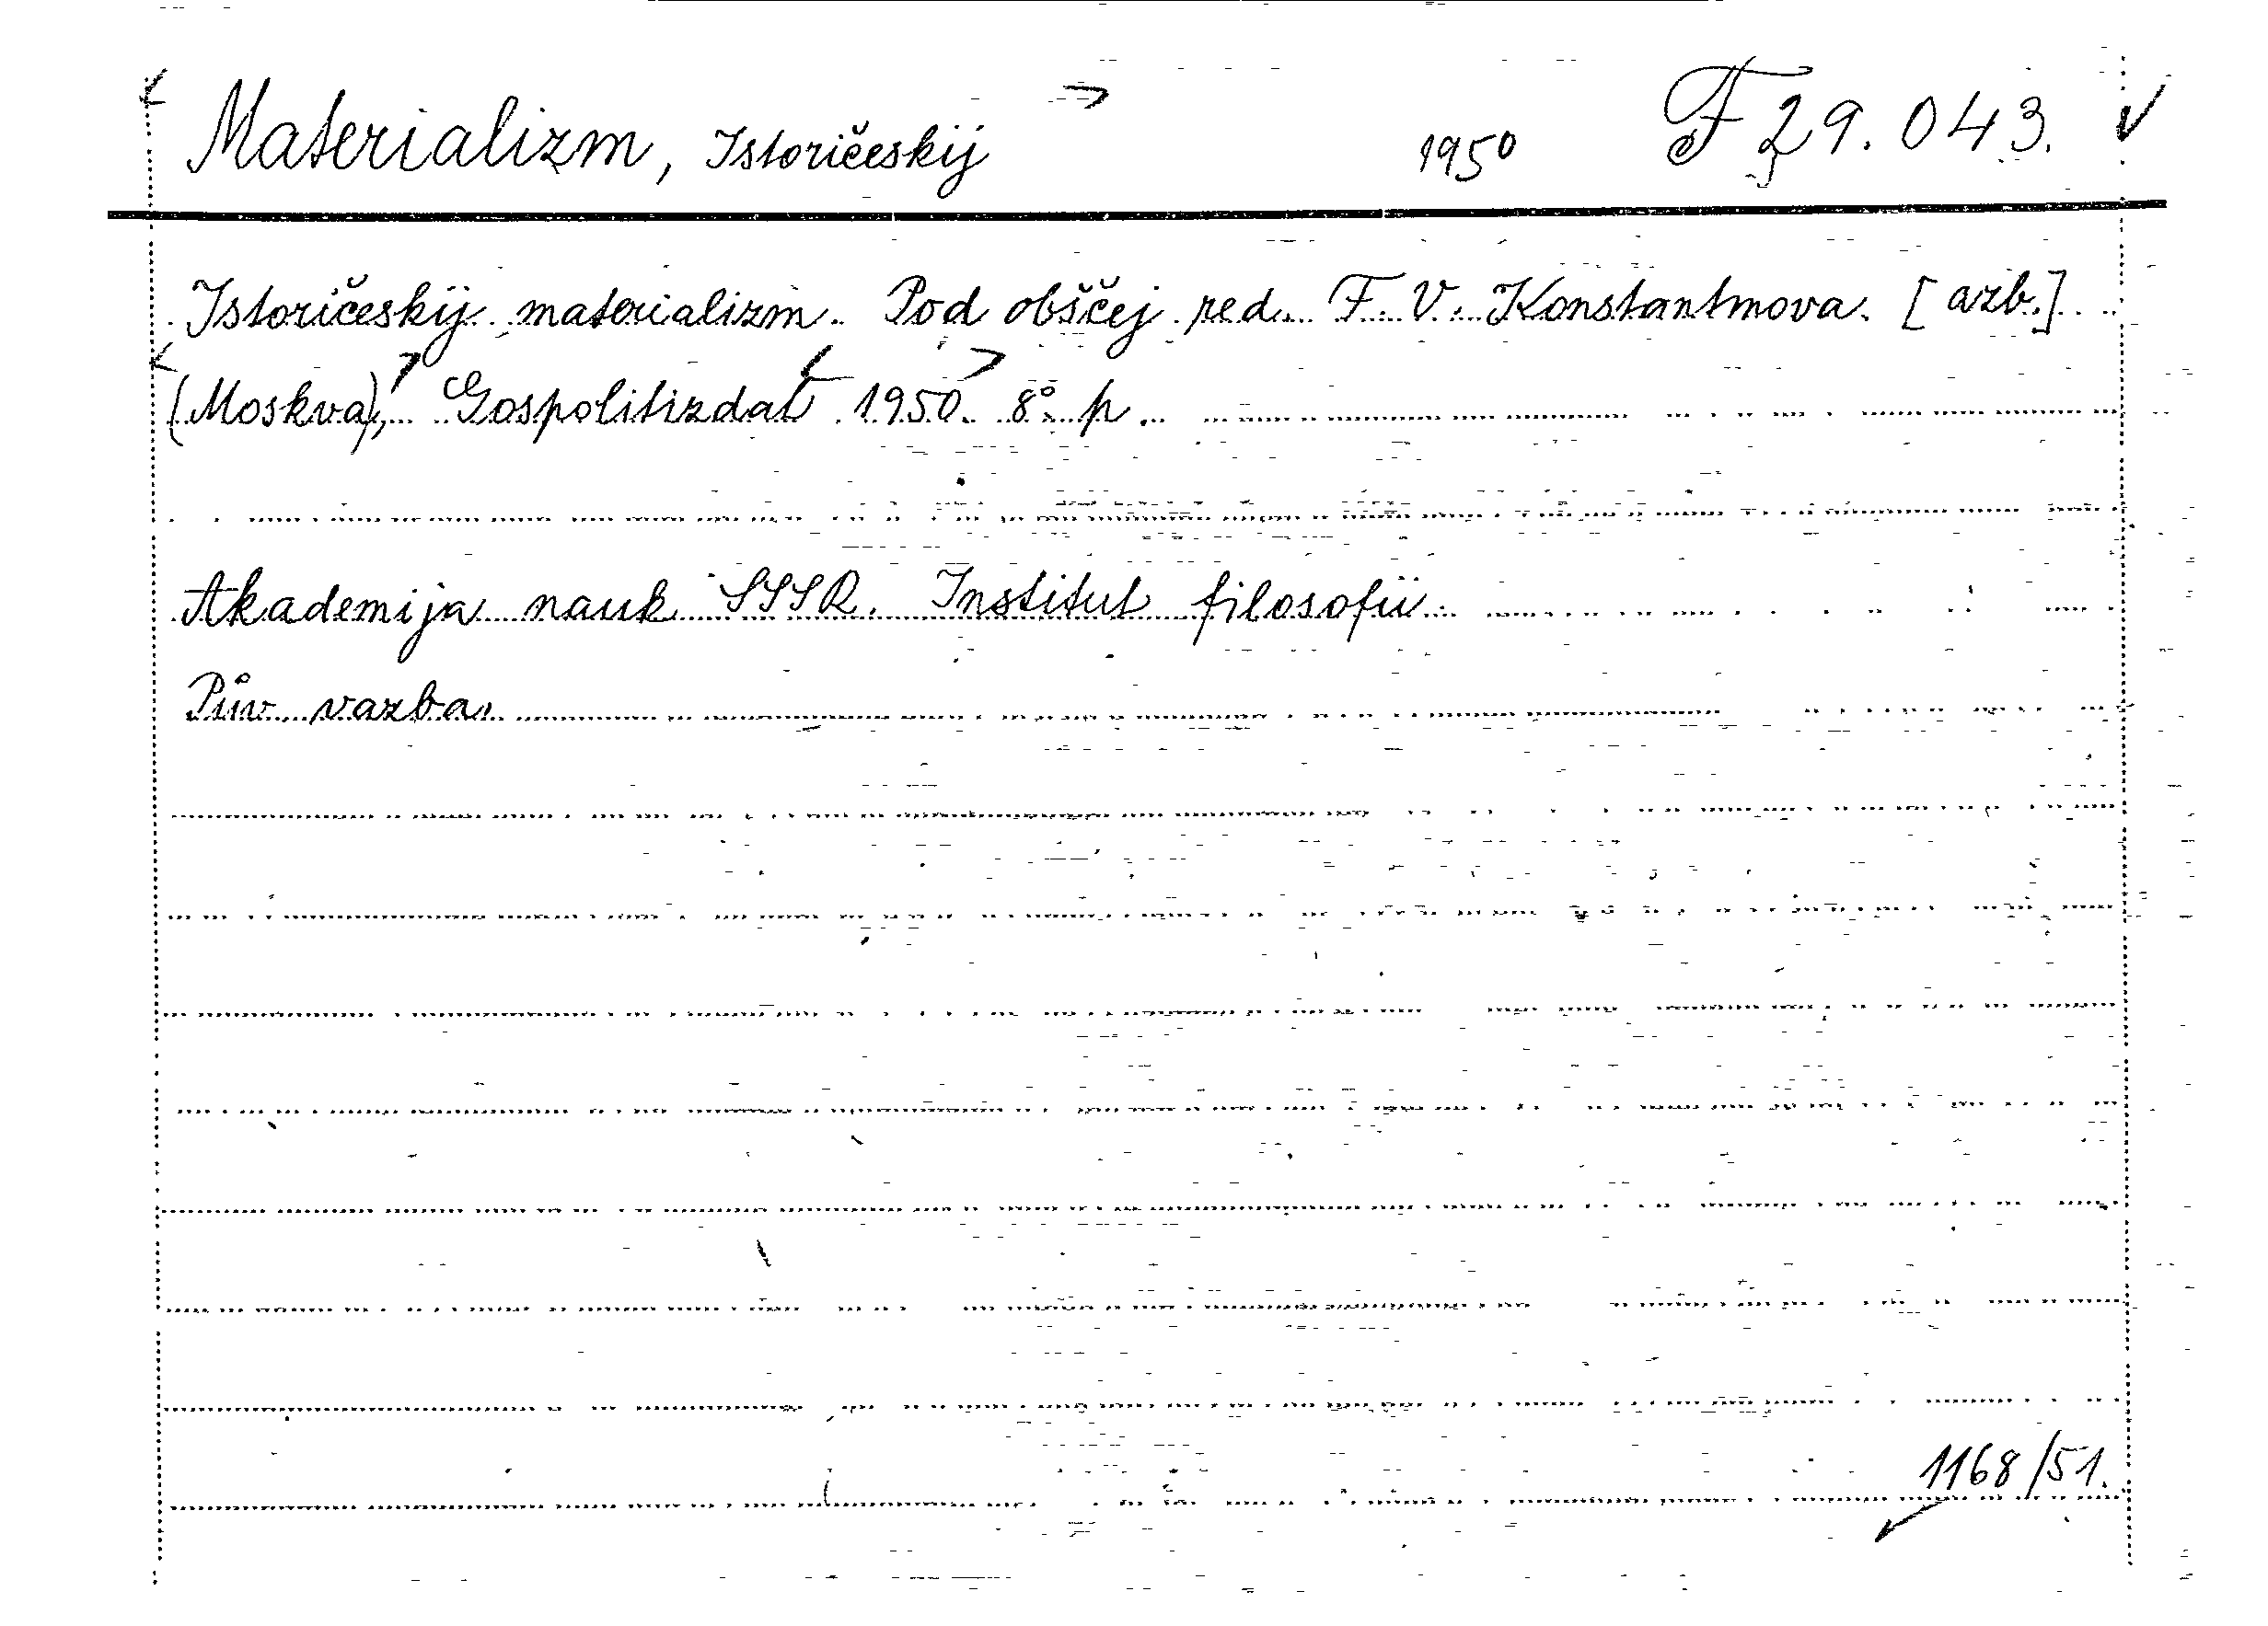 Materializm, Istoričeskij 1950 F 29.043.
Istoričeskij materializm. Pod obščej red. F. V. Konstantinova. [azb.]
(Moskva), Gospolitizdat 1950. 8° p.
Akademija nauk SSSR. Institut filosofii.
Pův. vazba.
1168/51.